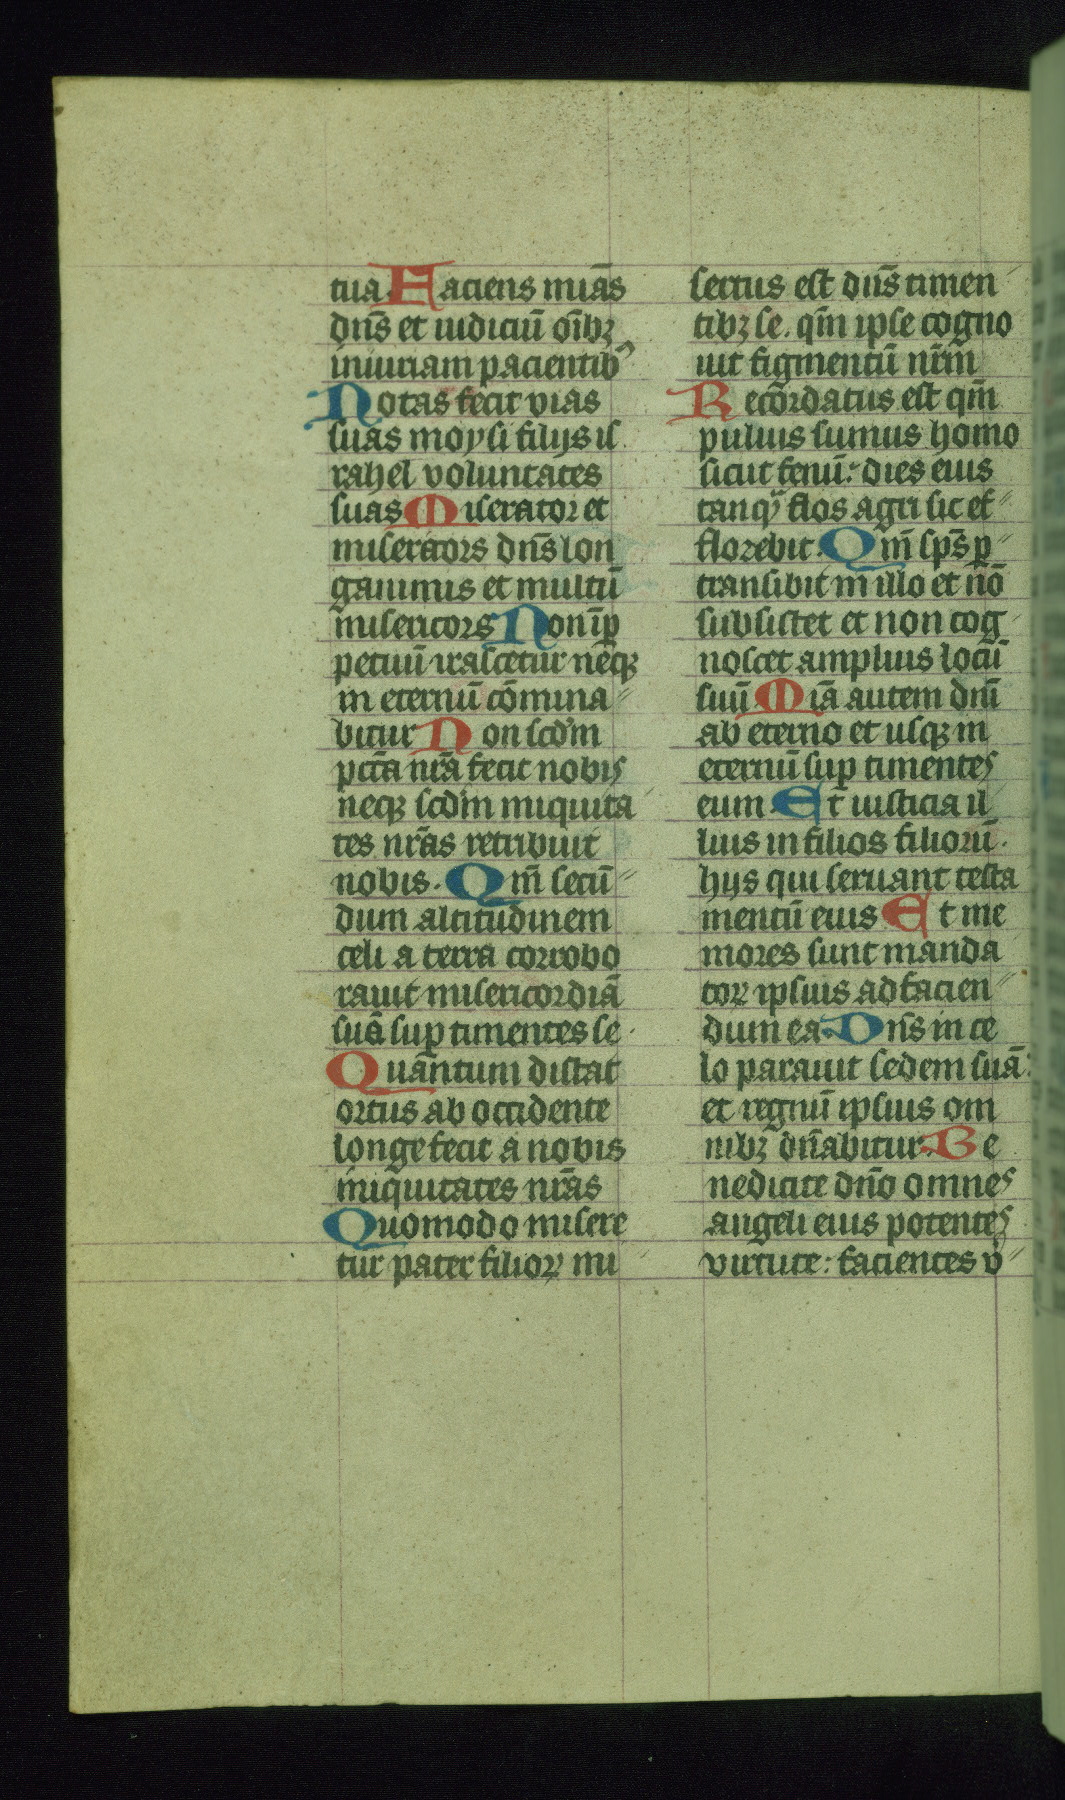 tua Faciens mi͞as
dn͞s et iudiciū oı͞bꝫ
iniuriam pacientibꝰ
Notas fecit vias
suas moysi filijs is
rahel voluntates
suas Miserator et
misericors dn͞s lon
ganimis et multū
misericors Non ip̄
petuū irascetur neqꝫ
in eternū cōmina〃
bitur Non scd̄m
pct̄a nr̄a fecit nobis
neqꝫ scd̄m iniquita〃
tes nr̄as retribuit
nobis. Qm̄ secū〃
dum altitudinem
celi a terra corrobo
rauit misericordiā
suā suꝑ timentes se.
Quantum distat
ortus ab occidente
longe fecit a nobis
iniquitates nr̄as
Quomodo misere
tur pater filioꝝ mi〃
sertus est dn͞s timen〃
tibꝫ se. qm̄ ipse cogno
uit figmentū nr̄m
Recōrdatus est qm̄
puluis sumus homo
sicut fenū: dies eius
tanqᵃ flos agri sic ef〃
florebit. Qm̄ sp͞s ꝑ〃
transibit in illo et nō
subsistet et non cog〃
noscet amplius locū
suū Mi͞a autem dn͞i
ab eterno et usqꝫ in
eternū suꝑ timentes
eum Et iusticia il
lius in filios filiorū.
hijs qui seruant testa
mentū eius Et me
mores sunt manda
toꝝ ipsius ad facien〃
dum ea. Dn͞s in ce
lo parauit sedem suā:
et regnū ipsius om
nibꝫ dn͞abitur. Be
nedicite dn͞o omnes
angeli eius potentes
virtute: facientes v̄〃